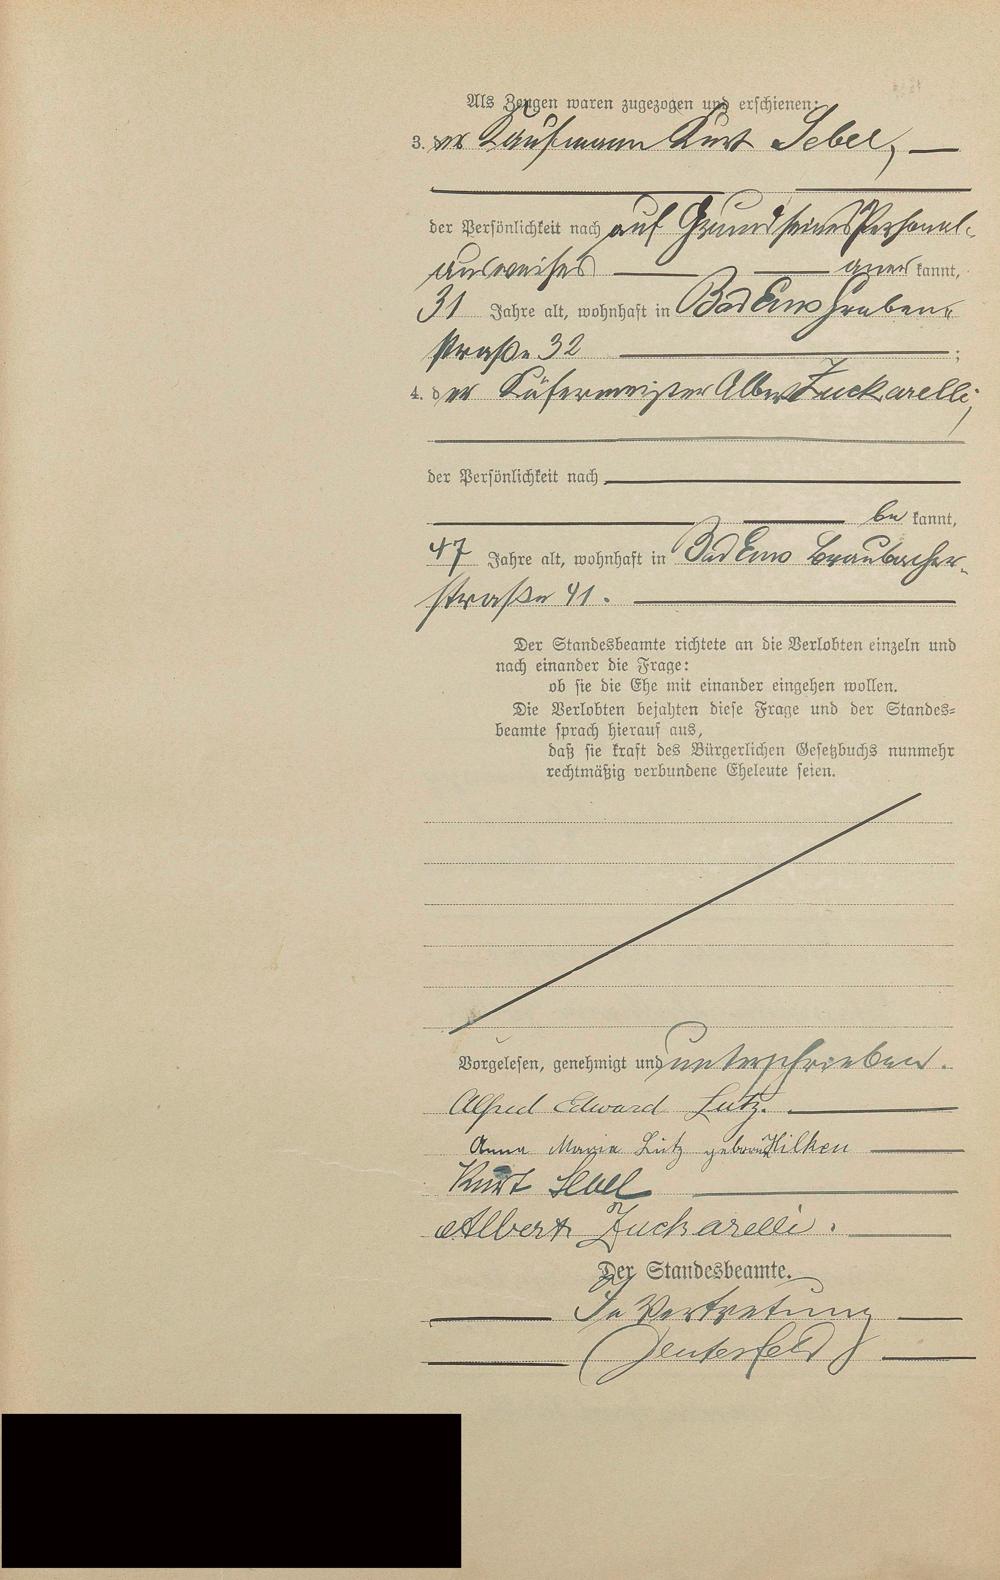 Als Zeugen waren zugezogen und erschienen:
3. der Kaufmann Kurt Sebel,
der Persönlichkeit nach auf Grund seines Personal-
ausweises aner kannt,
31 Jahre alt, wohnhaft in Bad Ems Graben-
straße 32 ;
4. der Küfermeister Albert Zuckarelli,
der Persönlichkeit nach
be kannt,
47 Jahre alt, wohnhaft in Bad Ems Braubacher-
straße 41.
Der Standesbeamte richtete an die Verlobten einzeln und
nach einander die Frage:
ob sie die Ehe mit einander eingehen wollen.
Die Verlobten bejahten diese Frage und der Standes-
beamte sprach hierauf aus,
daß sie kraft des Bürgerlichen Gesetzbuchs nunmehr
rechtmäßig verbundene Eheleute seien.
Vorgelesen, genehmigt und unterschrieben.
Alfred Edward Lutz.
Anna Maria Lutz Hilken
Kurt Sebel
Albert Zuckarelli.
Der Standesbeamte.
In Vertretung